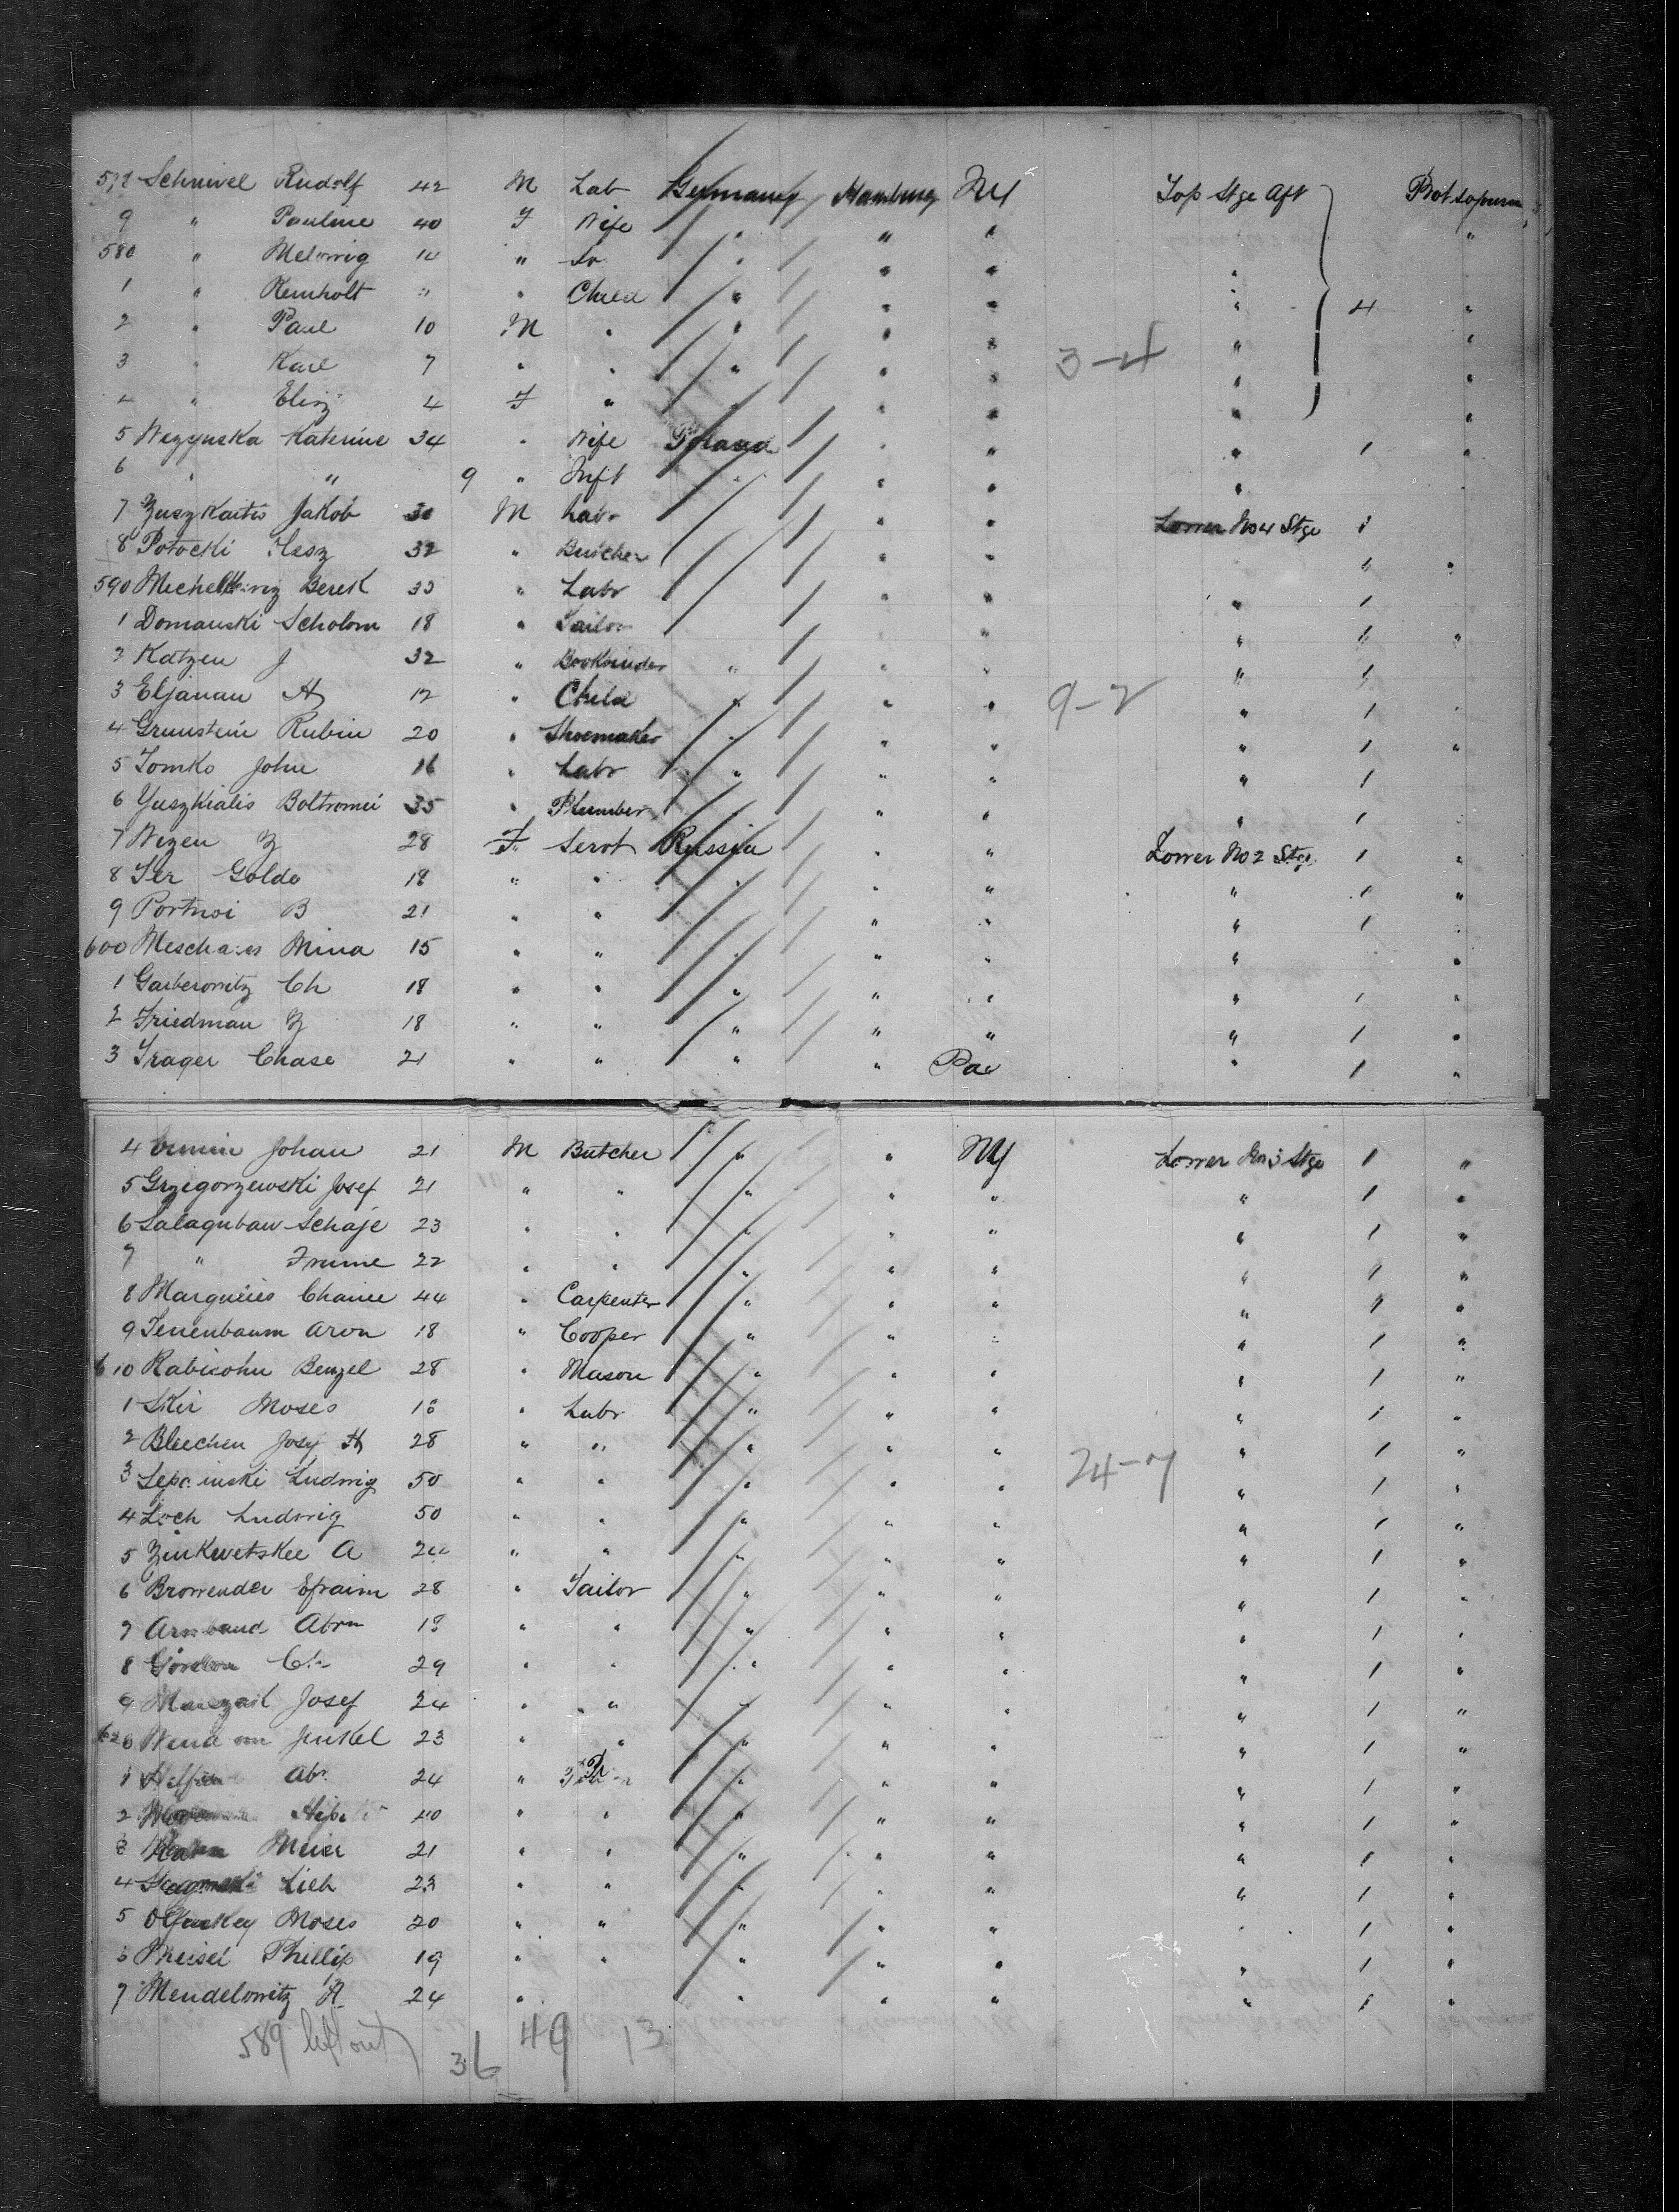 578 Schnivel Rudolf 42 M Lab Germany Hamburg NY Top Stge Aft Prot sojourn
9 " Pauline 40 F Wife " " " "
580 " 14 " " " " "
1 " " " Child " " " " 4 "
2 " Paul 10 M " " " " " "
3 " Karl 7 " " " " " " "
3-4
4 " 4 F " " " " "
5 Katerine 34 " Wife Poland " " " 1 "
6 " " 9 " Inft " " " "
7 Jakob 30 M Labr " " Lower No 4 Stge 1
8 Potocki 32 " Butcher " " " "
590 Berek 33 " Labr " " " 1
1 Domanski Scholom 18 " Tailor " " " "
2 Katzen J 32 " Bookbinder " " " " "
3 Eljanan A 12 " Child " " " " 1 "
9-2
4 Grunstein Rubin 20 " Shoemaker " " " " 1 "
5 Tomko John 16 " Labr " " " " 1
6 Yuszkialis Boltromei 35 " Plumber " " " 1 "
7 Wezen 28 F Servt Russia " " Lower No 2 Stge 1 "
8 Golde 18 " " " " " " 1 "
9 Portnoi B 21 " " " " " 1 "
600 Mina 15 " " " " " " "
1 Garberowitz Ch 18 " " " " " " 1 "
2 Friedman 18 " " " " " " 1 "
3 Trager Chase 21 " " " " Pa " 1 "
4 Johan 21 M Butcher " " NY Lower No 3 Stge 1 "
5 Grzegorzewski Josef 21 " " " " " " 1 "
6 Schaje 23 " " " " " " 1 "
7 " Frume 22 " " " " " " 1 "
8 Margulies Chaim 44 " Carpenter " " " " 1 "
9 Tenenbaum Aron 18 " Cooper " " " " 1 "
610 Rabisohn Benzel 28 " Mason " " " " 1 "
1 Skir Moses 18 " Labr " " " " 1 "
2 Bleechen 28 " " " " " " 1 "
24-7
3 Ludwig 50 " " " " " " 1 "
4 Loch Ludwig 50 " " " " " " 1 "
5 Zinkwetskee A " " " " " " 1 "
6 Browender Efraim 28 " Tailor " " " " 1 "
7 Abrm " " " " " " 1 "
8 Gordon 29 " " " " " " 1 "
9 Josef 24 " " " " " " 1 "
620 23 " " " " " " 1 "
1 Abr 24 " " " " " 1 "
2 40 " " " " " " 1 "
3 Meier 21 " " " " " " 1 "
4 Lieb 23 " " " " " " 1 "
5 Moses 20 " " " " " " 1 "
6 Phillip 19 " " " " " " 1 "
7 Mendelowitz R 24 " " " " " 1 "
589 left out
36 49 13